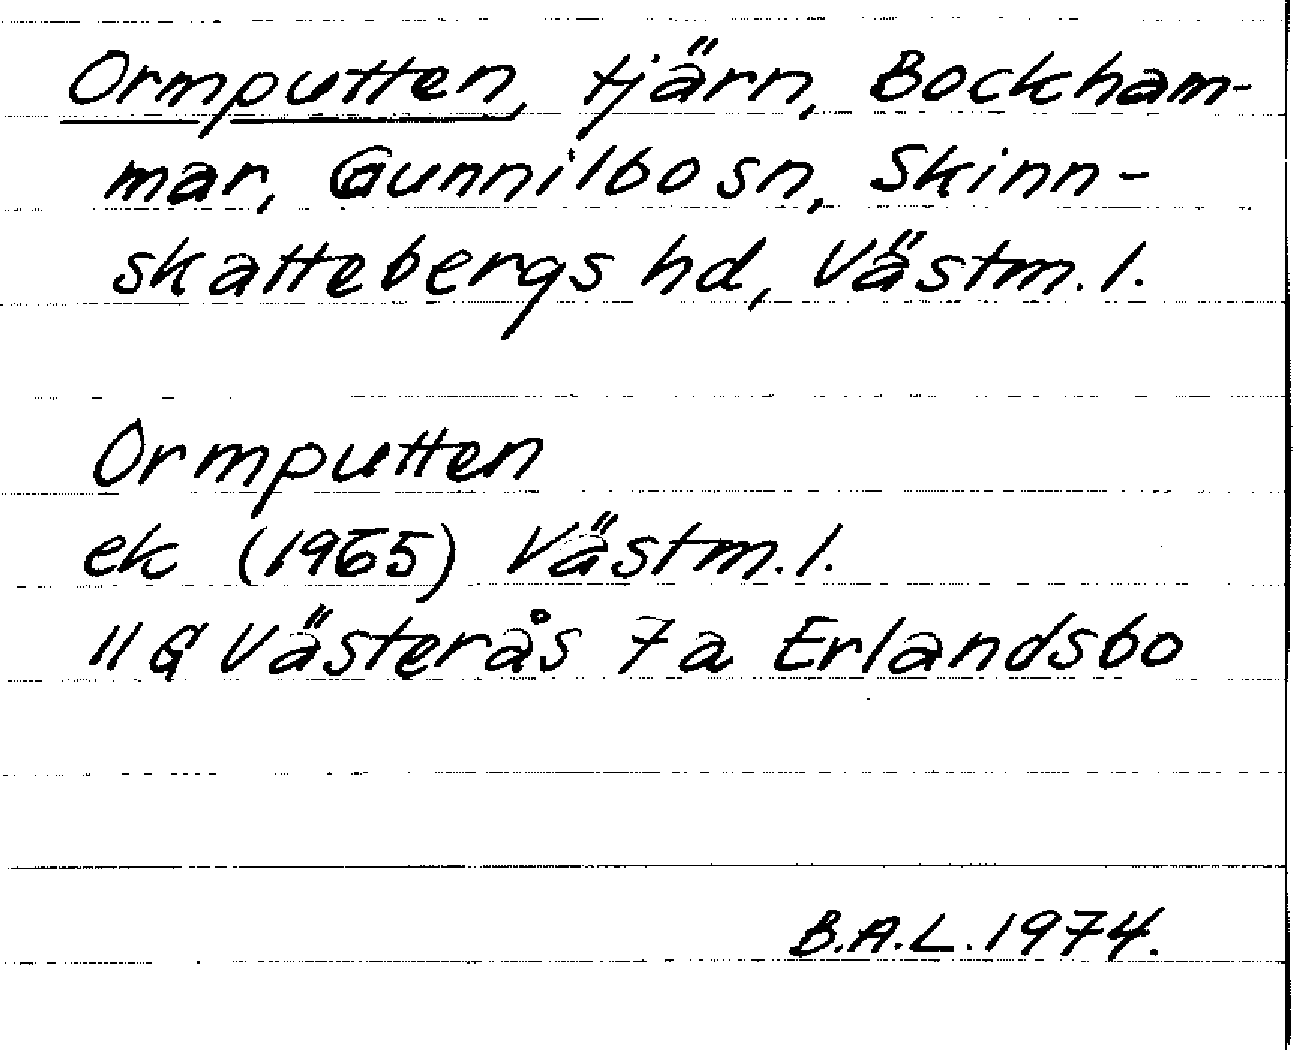 Ormputten, tjärn, Bockham-
mar, Gunnilbo sn, Skinn-
skattebergs hd, Västm. l.
Ormputten
ek (1965) Västm. l.
11 G Västerås 7 a Erlandsbo
B.A.L. 1974.